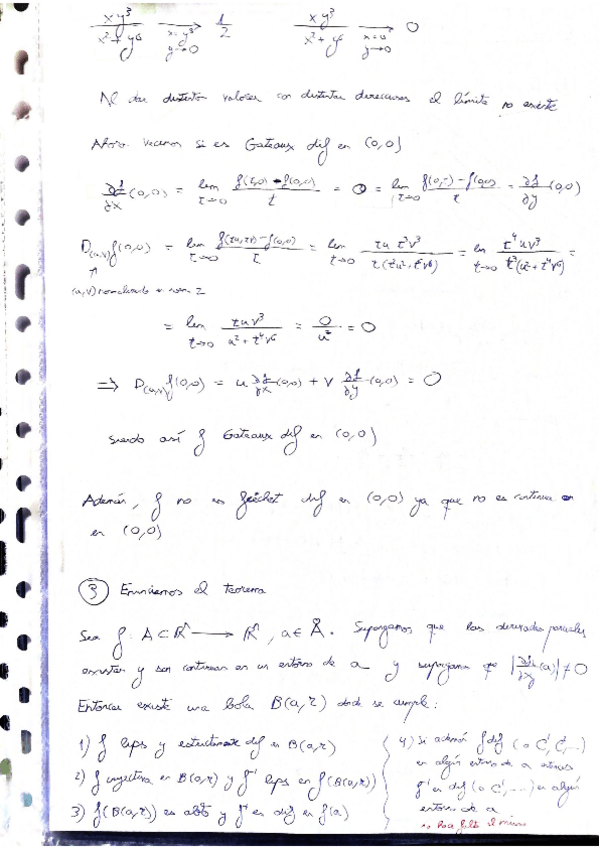 xy³ / (x²+y⁶) → (x=y³, y→0) 1/2    xy³ / (x²+y⁶) → (x=0, y→0) 0
Al dar distintos valores con distintas direcciones el límite no existe
Ahora veamos si es Gateaux dif en (0,0)
∂f/∂x (0,0) = lim t→0 (f(t,0) - f(0,0)) / t = 0 = lim t→0 (f(0,t) - f(0,0)) / t = ∂f/∂y (0,0)
D(u,v)f(0,0) = lim t→0 (f(tu,tv) - f(0,0)) / t = lim t→0 tu t³v³ / t(t²u²+t⁶v⁶) = lim t→0 t⁴uv³ / t³(u²+t⁴v⁶) =
(u,v) normalizado en norma 2
= lim t→0 tuv³ / (u²+t⁴v⁶) = 0/u² = 0
⟹ D(u,v)f(0,0) = u ∂f/∂x (0,0) + v ∂f/∂y (0,0) = 0
siendo así f Gateaux dif en (0,0)
Además, f no es fréchet dif en (0,0) ya que no es continua en
en (0,0)
③ Enunciamos el teorema
Sea f: A⊂ℝⁿ → ℝⁿ, a∈Å. Supongamos que las derivadas parciales
existen y son continuas en un entorno de a y supongamos que |∂fi/∂xj (a)| ≠ 0
Entonces existe una bola B(a,r) donde se cumple:
1) f lips y estrictamente dif en B(a,r)
2) f inyectiva en B(a,r) y f⁻¹ lips en f(B(a,r))
3) f(B(a,r)) es abto y f⁻¹ es dif en f(a)
4) Si además f dif (o C¹, C²,...)
en algún entorno de a entonces
f⁻¹ es dif (o C¹,...) en algún
entorno de a
no hace falta el mismo